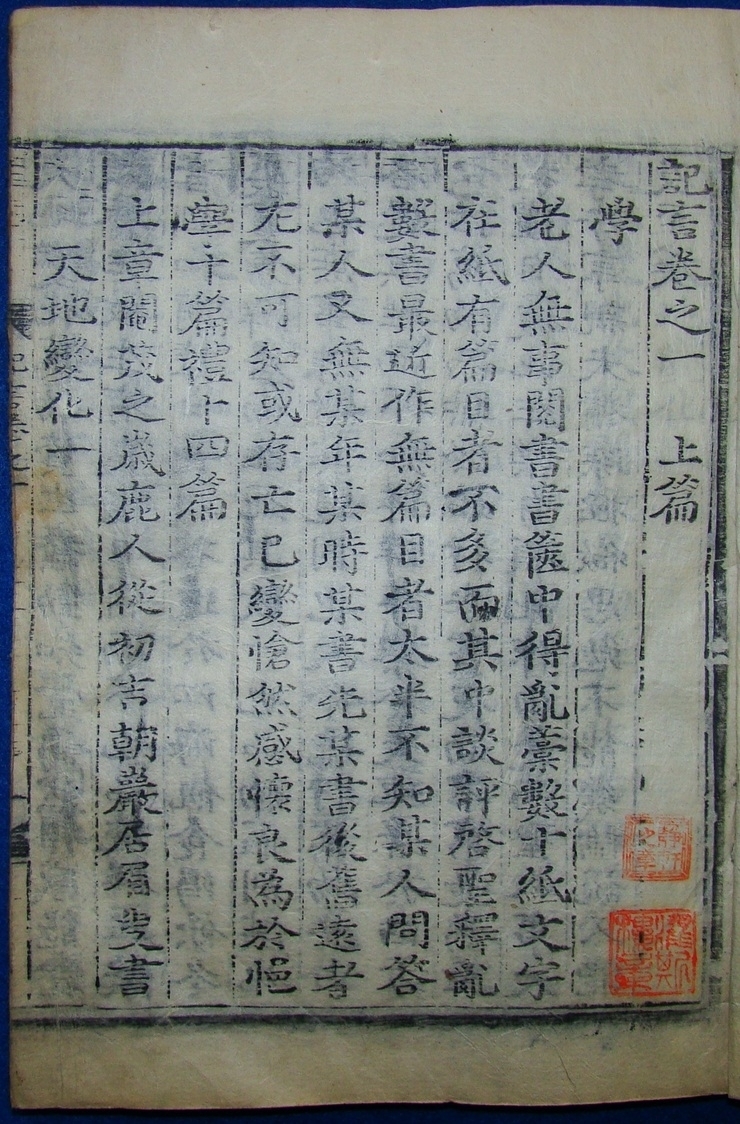 記言卷之一 上篇
學
老人無事閱書書篋中得亂藁數十紙文字
在紙有篇目者不多而其中談評啓聖釋亂
數書最近作無篇目者太半不知某人問答
某人又無某年某時某書先某書後舊遠者
尤不可知或存亡已變愴然感懷良為於悒
十篇禮十四篇
上章閹茂之歲鹿人從初言朝嚴居眉叟書
天地變化一
記言卷之一